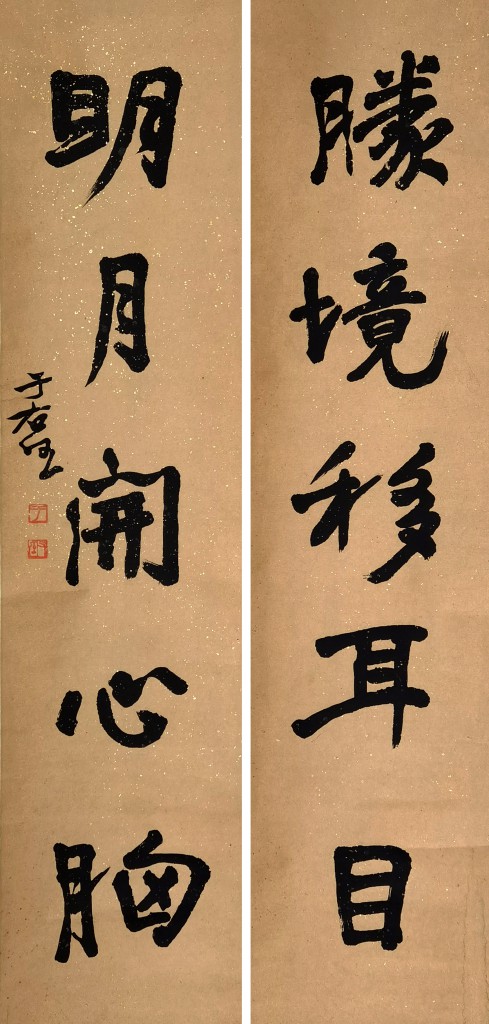 勝境移耳目
明月開心胸
于右任